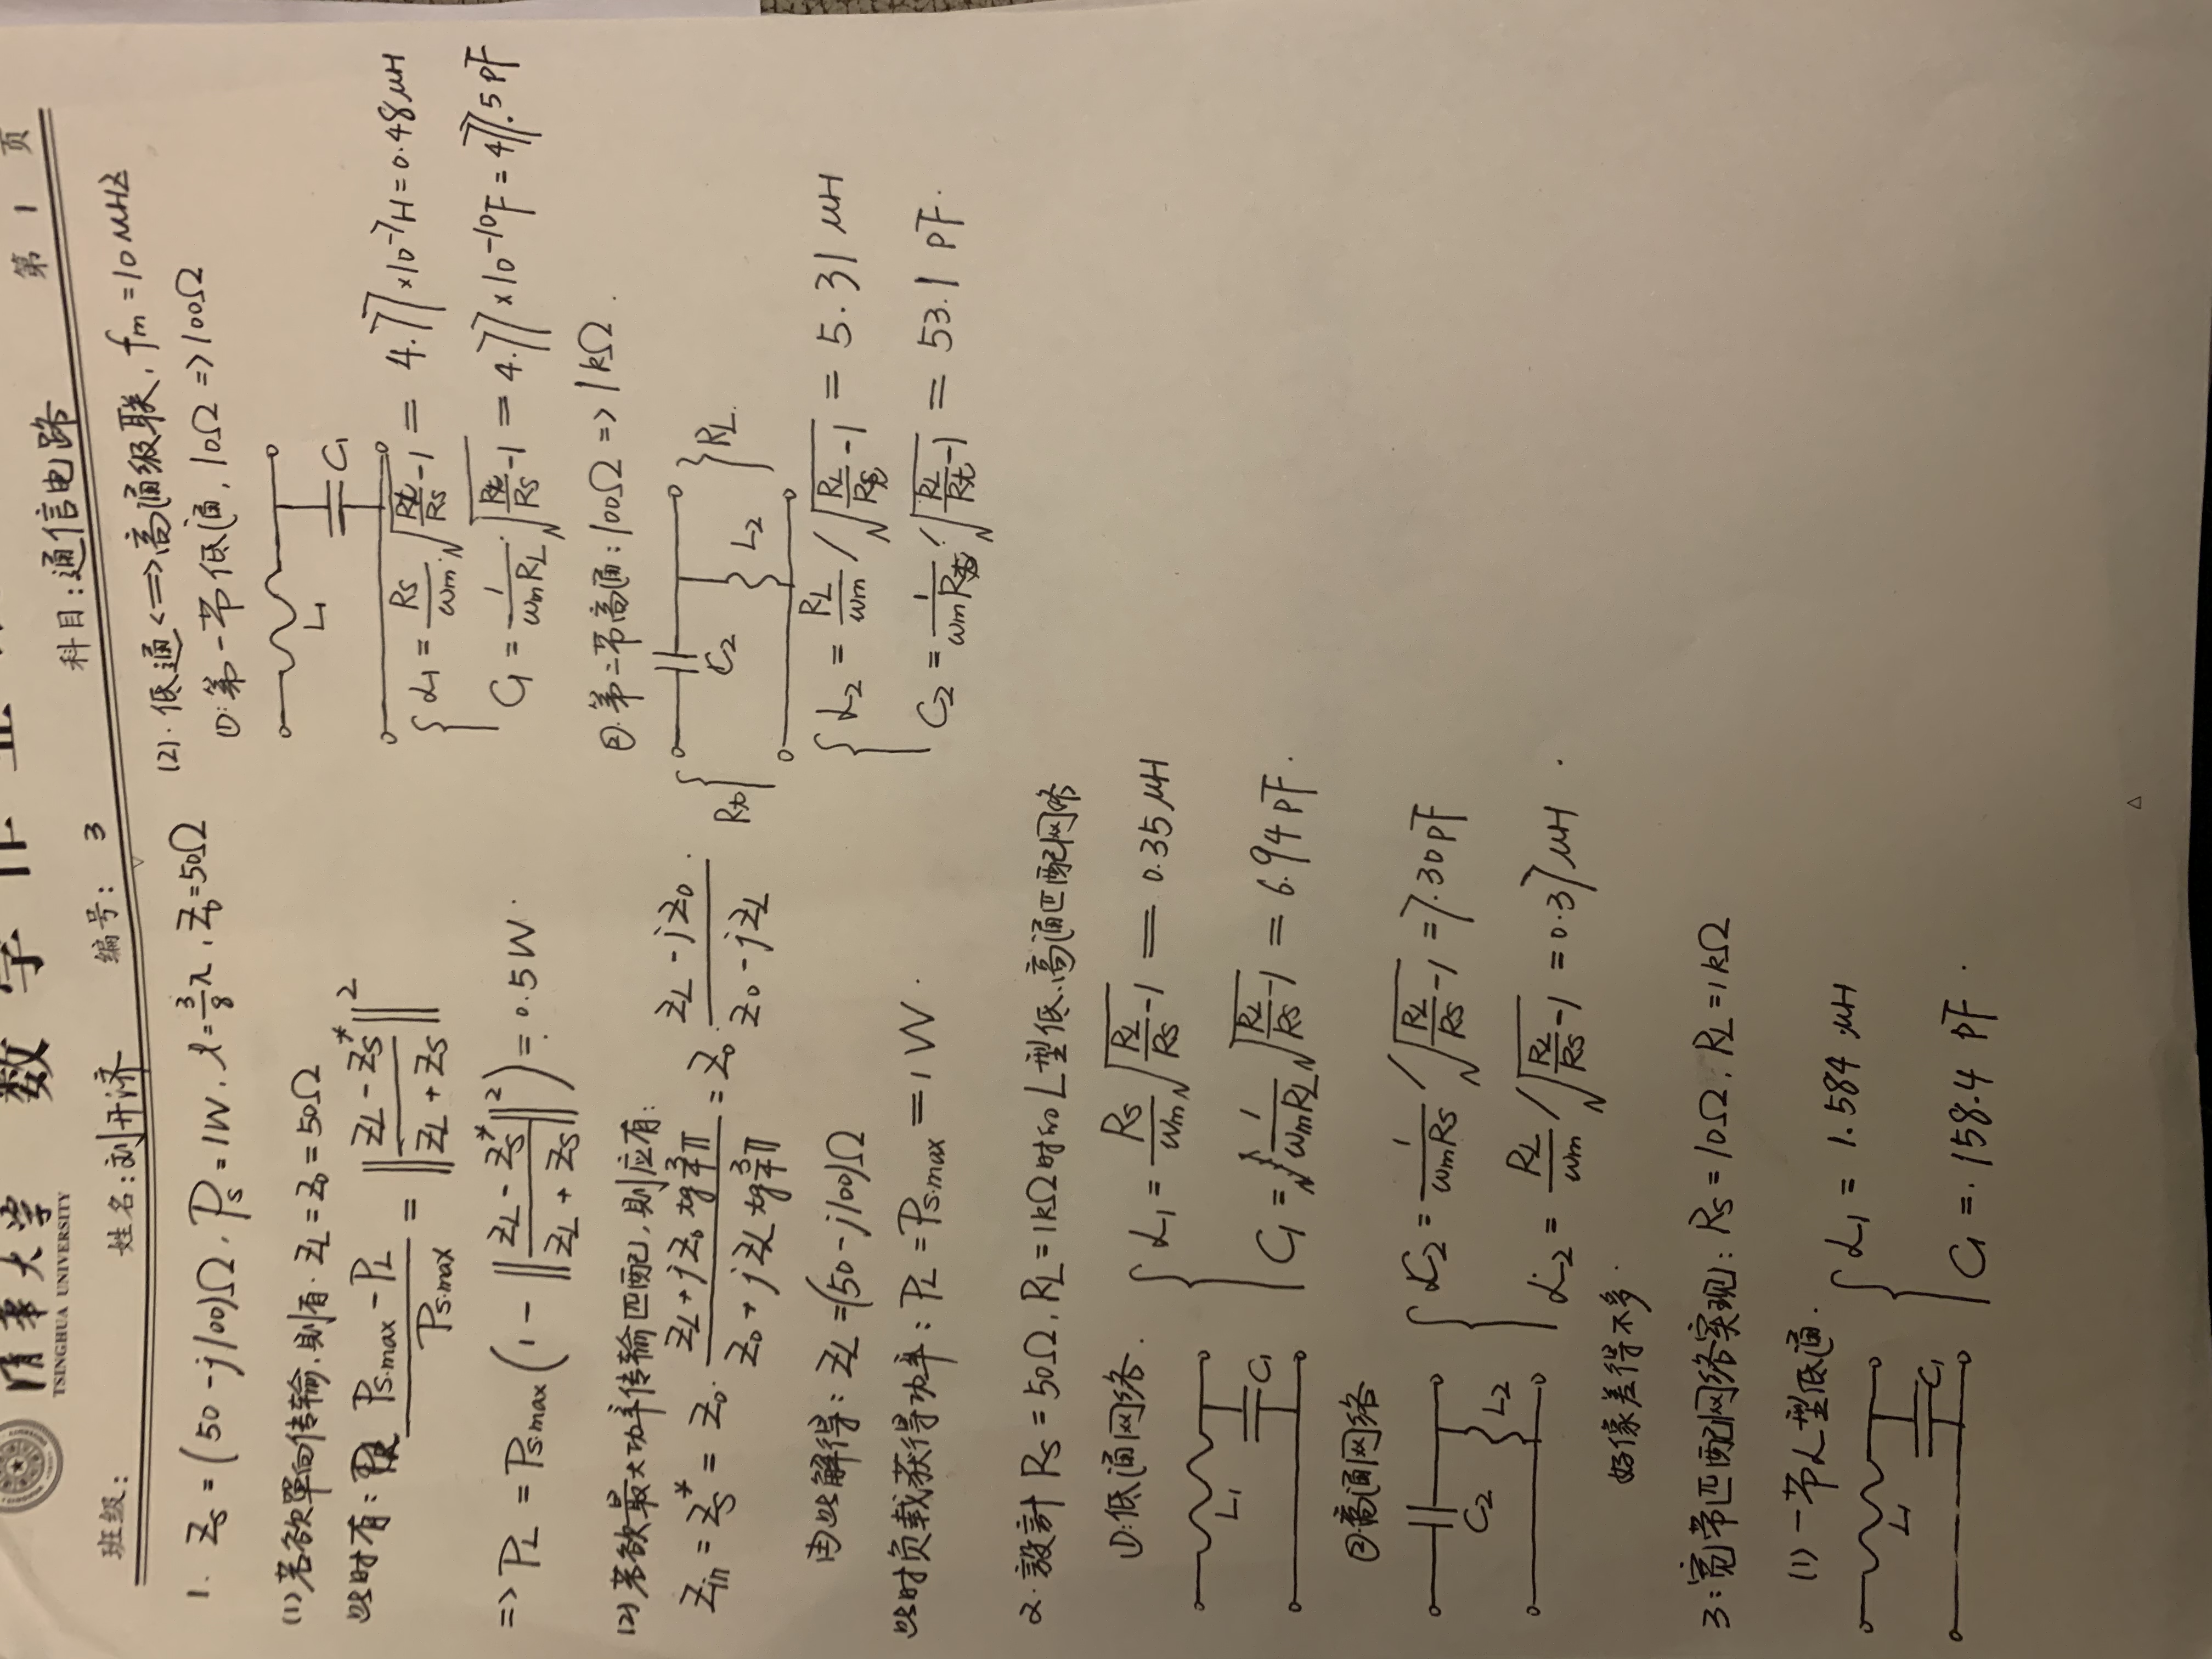 清華大学 数学作业
TSINGHUA UNIVERSITY
班级: 姓名: 刘开济 编号: 3 科目: 通信电路 第 1 页
1. Zs = (50 - j100)Ω, Ps = 1W, l = 3/8 λ, Z0 = 50Ω
(1) 若欲單向传输,则有. ZL = Z0 = 50Ω
此时有: (Ps.max - PL)/Ps.max = ||(ZL - Zs*)/(ZL + Zs)||²
=> PL = Ps.max (1 - ||(ZL - Zs*)/(ZL + Zs)||²) = 0.5W.
(2) 若欲最大功率传输匹配,则应有:
Zin = Zs* = Z0 · (ZL + jZ0 tg 3/4 π)/(Z0 + jZL tg 3/4 π) = Z0 · (ZL - jZ0)/(Z0 - jZL).
由此解得: ZL = (50 - j100)Ω
此时负载获得功率: PL = Ps.max = 1W.
2. 設計 Rs = 50Ω, RL = 1kΩ时的 L型低、高通匹配网络
①:低通网络.
L1 = Rs/ωm √(RL/Rs - 1) = 0.35 μH
L1
C1
C1 = 1/(ωmRL) √(RL/Rs - 1) = 6.94 pF.
②.高通网络
C2 = 1/(ωmRs) / √(RL/Rs - 1) = 7.30 pF
C2
L2
L2 = RL/ωm / √(RL/Rs - 1) = 0.37 μH.
好像差得不多.
3: 宽带匹配网络实现: Rs = 10Ω, RL = 1kΩ
(1) 一节L型低通.
L1 = 1.584 μH
L1
C1
C1 = 158.4 pF.
(2). 低通<=>高通级联, fm = 10MHz
①:第一节低通, 10Ω => 100Ω
L1
C1
L1 = Rs/ωm · √(Rt/Rs - 1) = 4.77×10⁻⁷H = 0.48μH
C1 = 1/(ωmRL) · √(Rt/Rs - 1) = 4.77×10⁻¹⁰F = 477.5 pF
②.第二节高通: 100Ω => 1kΩ.
Rt
C2
L2
RL.
L2 = RL/ωm / √(RL/Rt - 1) = 5.31 μH
C2 = 1/(ωmRt) / √(RL/Rt - 1) = 53.1 pF.